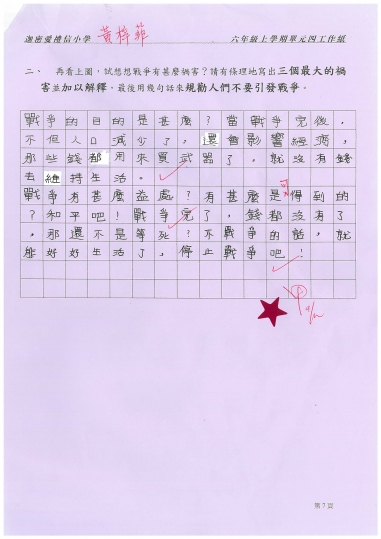 迦密愛禮信小學 黃梓菲 六年級上學期單元四工作紙
二、 再看上圖，試想想戰爭有甚麼禍害？請有條理地寫出三個最大的禍
害並加以解釋，最後用幾句話來規勸人們不要引發戰爭。
戰爭的目的是甚麼？當戰爭完後，
不但人口減少了，還會影響經濟，
那些錢都用來買武器了，就沒有錢
去維持生活。
戰爭有甚麼益處？有甚麼是得到的
？和平吧！戰爭完了，錢都沒有了
，那還不是等死？不戰爭的話，就
能好好生活了，停止戰爭吧！
第7頁